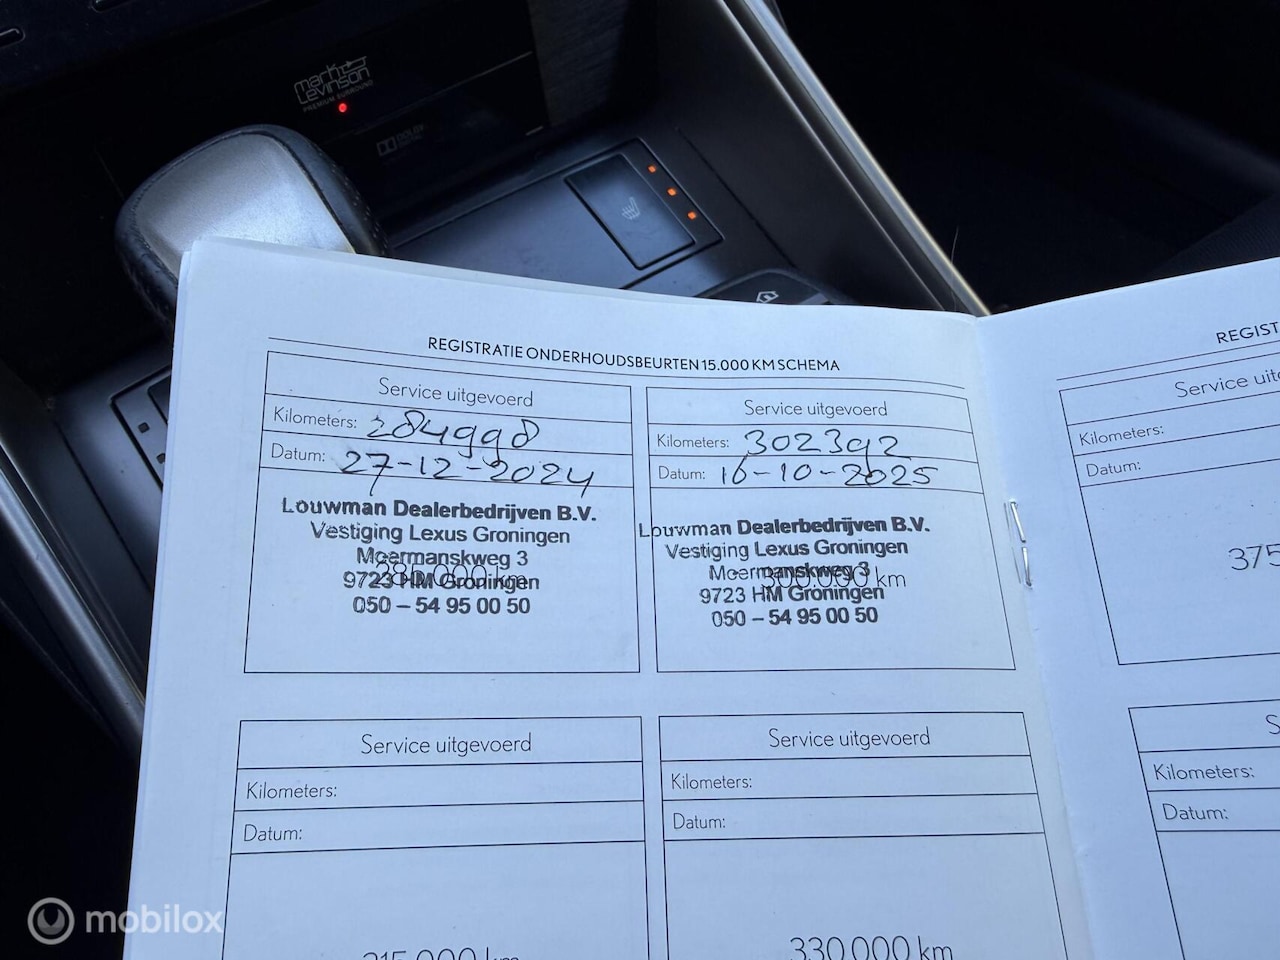 mark
Levinson
PREMIUM SURROUND
DOLBY
REGISTRATIE ONDERHOUDSBEURTEN 15.000 KM SCHEMA
Service uitgevoerd
Kilometers: 284998
Datum: 27-12-2024
Louwman Dealerbedrijven B.V.
Vestiging Lexus Groningen
Moermanskweg 3
9723 HM Groningen
285.000 km
050 – 54 95 00 50
Service uitgevoerd
Kilometers: 302392
Datum: 16-10-2025
Louwman Dealerbedrijven B.V.
Vestiging Lexus Groningen
Moermanskweg 3
300.000 km
9723 HM Groningen
050 – 54 95 00 50
Service uitgevoerd
Kilometers:
Datum:
315.000 km
Service uitgevoerd
Kilometers:
Datum:
330.000 km
REGIST
Service uitg
Kilometers:
Datum:
375
S
Kilometers:
Datum:
mobilox